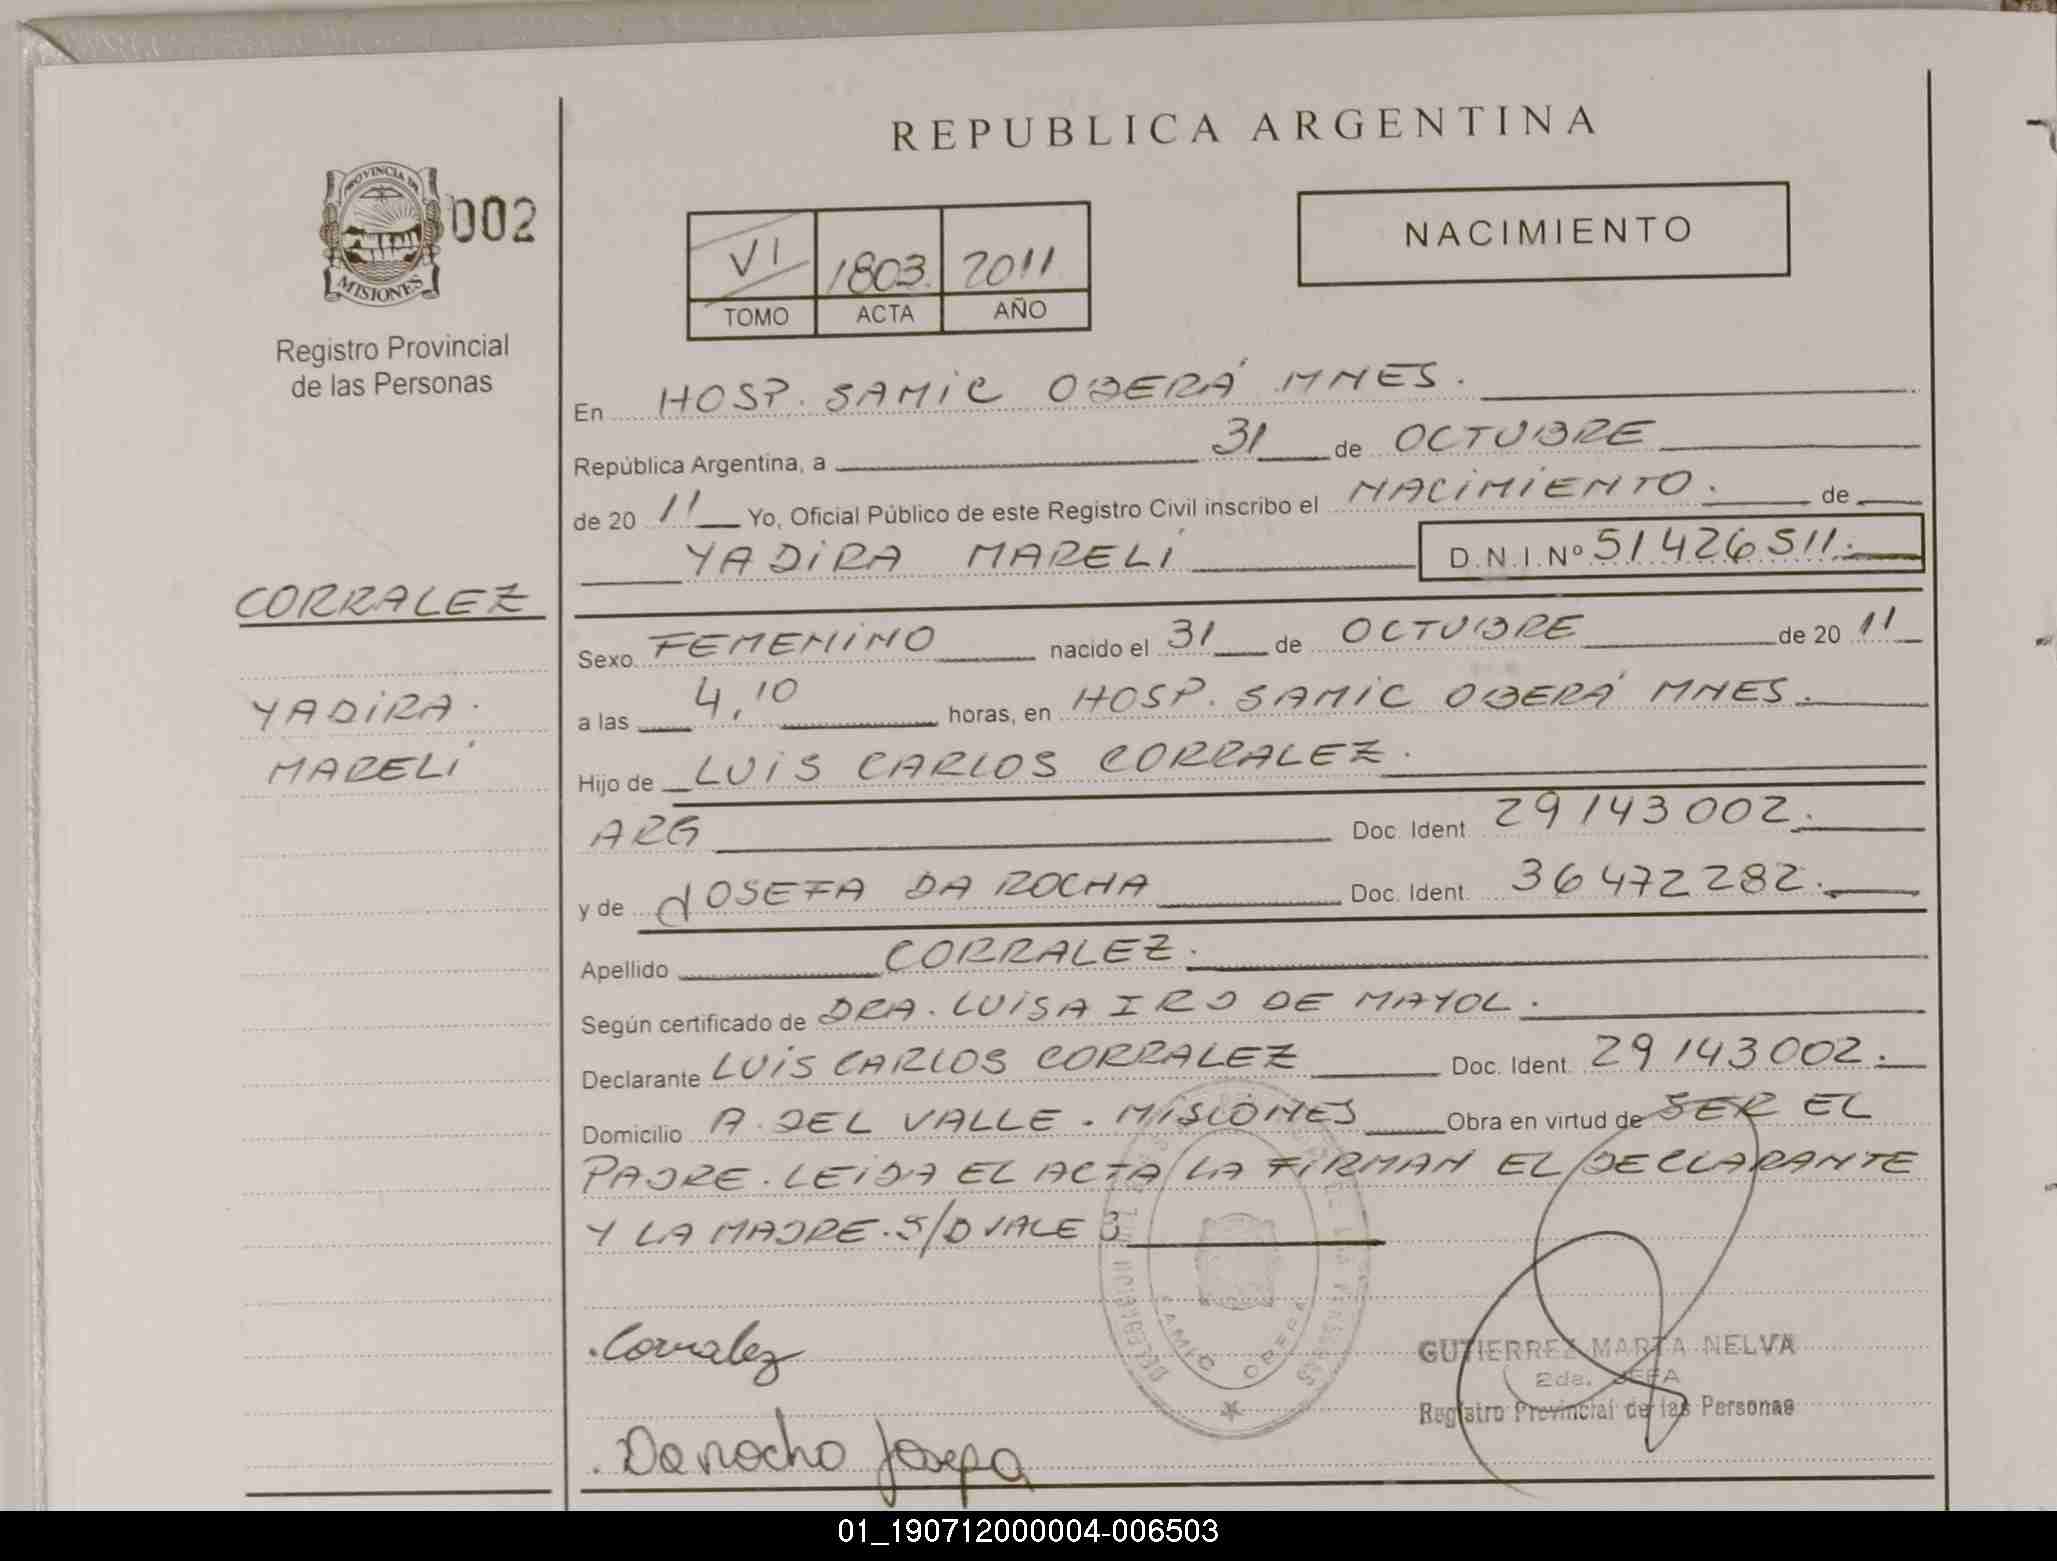 REPUBLICA ARGENTINA
PROVINCIA DE
MISIONES
002
Registro Provincial
de las Personas
VI 1803. 2011
TOMO ACTA AÑO
NACIMIENTO
En HOSP. SAMIC OBERÁ MNES.
República Argentina, a 31 de OCTUBRE
de 20 11 Yo, Oficial Público de este Registro Civil inscribo el NACIMIENTO. de
YADIRA MARELÍ D.N.I.Nº 51426511.
CORRALEZ
YADIRA.
MARELÍ
Sexo FEMENINO nacido el 31 de OCTUBRE de 20 11
a las 4,10 horas, en HOSP. SAMIC OBERÁ MNES.
Hijo de LUIS CARLOS CORRALEZ.
ARG Doc. Ident. 29143002.
y de JOSEFA DA ROCHA Doc. Ident. 36472282.
Apellido CORRALEZ.
Según certificado de DRA. LUISA IRO DE MAYOL.
Declarante LUIS CARLOS CORRALEZ Doc. Ident. 29143002.
Domicilio A. DEL VALLE. MISIONES Obra en virtud de SER EL
PADRE. LEIDA EL ACTA LA FIRMAN EL DECLARANTE
Y LA MADRE. S/D VALE
SAMIC OBERA
.Corralez
GUTIERREZ MARTA NELVA
2da. JEFA
Registro Provincial de las Personas
. Da rocho Josefa
01_190712000004-006503